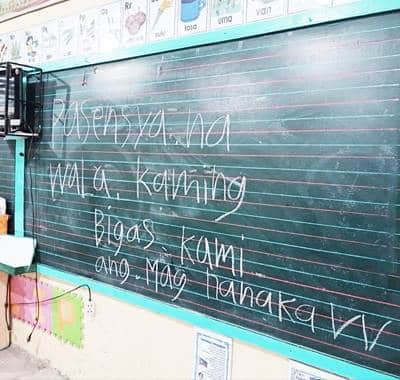 Rr
suki
tasa
uma
van
Pasensya na
wala kaming
Bigas kami
ang mag nanakaw